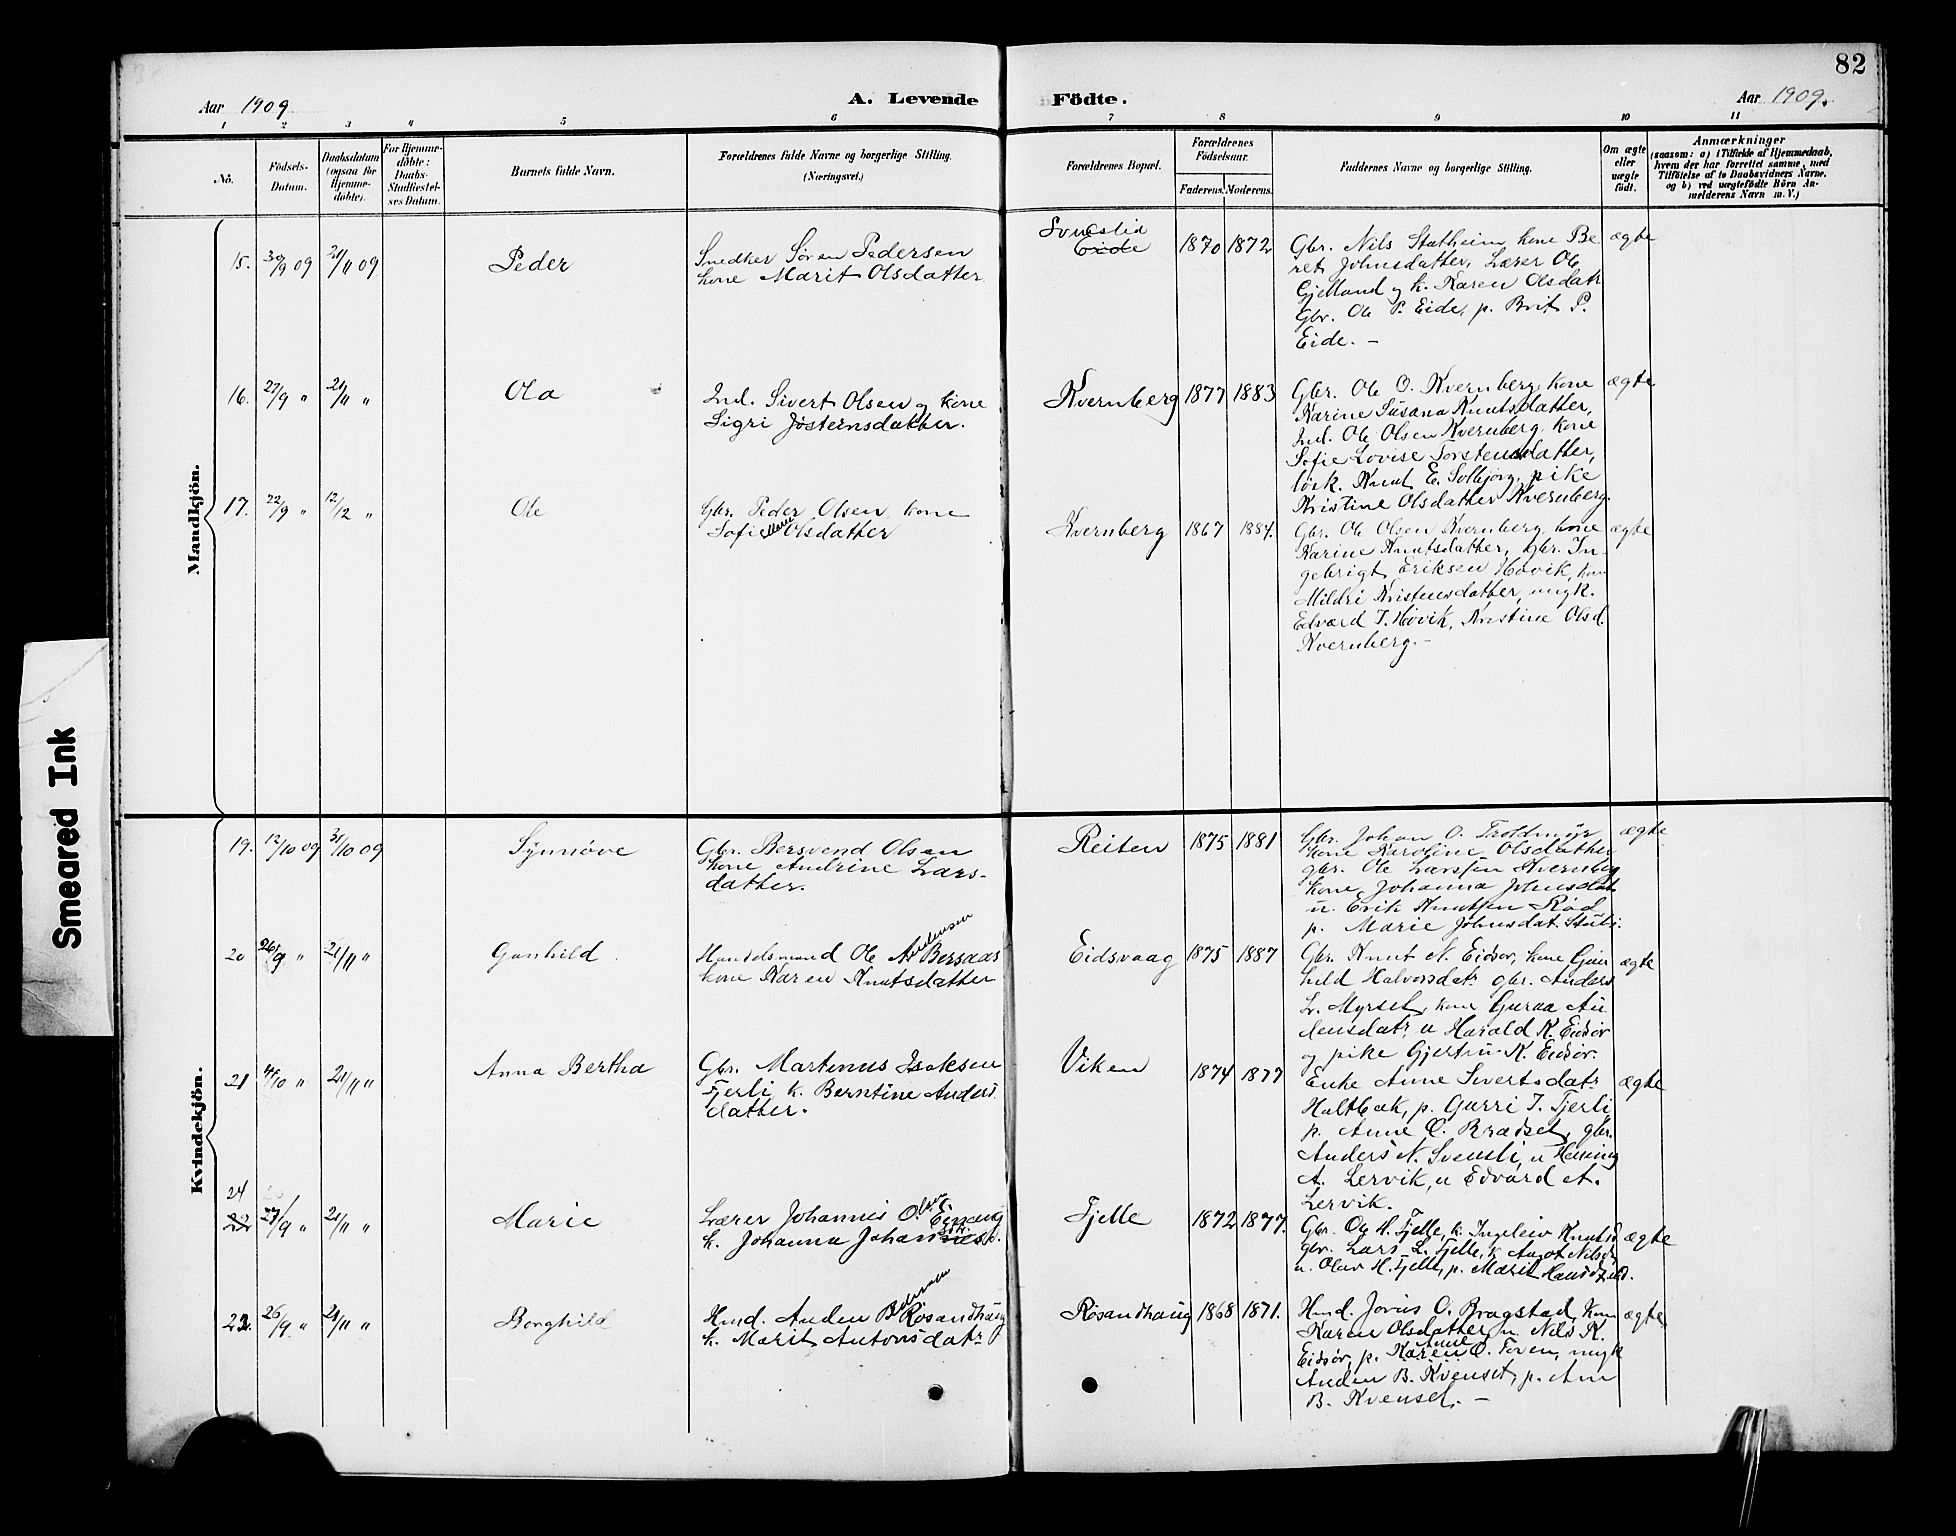 82
Aar 1909
A. Levende Födte.
Aar 1909.
1 2 3 4 5 6 7 8 9 10 11
No.
Födsels-
Datum.
Daabsdatum
(ogsaa for
Hjemme-
döbte).
For Hjemme-
döbte:
Daabs-
Stadfæstel-
ses Datum.
Barnets fulde Navn.
Forældrenes fulde Navne og borgerlige Stilling.
(Næringsvei.)
Forældrenes Bopæl.
Forældrenes
Födselsaar.
Faderens. Moderens.
Faddernes Navne og borgerlige Stilling.
Om ægte
eller
uægte
födt.
Anmærkninger
(saasom: a) i Tilfælde af Hjemmedaab,
hvem der har forrettet samme, med
Tilföielse af to Daabsvidners Navne,
og b) ved uægtefödte Börn An-
melderens Navn m. V.)
Mandkjön.
15. 30/9 09 21/11 09
Peder
Snedker Sören Pedersen
kone Marit Olsdatter
Eide
1870 1872
Gbr. Nils Statheim, kone Be
ret Johnsdatter, Lærer Ole
Gjelland og k. Karen Olsdatr
Gbr. Ole P. Eide, p. Brit P.
Eide. —
ægte
16. 27/9 " 21/11 "
Ola
Ind. Sivert Olsen og kone
Sigri Jøsternsdatter.
Kvernberg
1877 1883
Gbr. Ole O. Kvernberg, kone
Karine Susana Knutsdatter,
Ind. Ole Olsen Kvernberg, kone
Sofie Lovise Torstensdatter,
løsk. Knut E. Solbjørg, pike
Kristine Olsdatter Kvernberg.
ægte
17. 22/9 " 12/12 "
Ole
Gbr. Peder Olsen, kone
Sofie Olsdatter
Kvernberg
1867 1884.
Gbr. Ole Olsen Kvernberg, kone
Karine Knutsdatter, Gbr. In-
gebrigt Eriksen Hovik, kone
Mildri Kristensdatter, ungk.
Edvard I. Hovik, Kristine Olsd.
Kvernberg. —
ægte
Kvindekjön.
19. 12/10 09 31/10 09
Synnøve
Gbr. Bersvend Olsen
kone Andrine Lars-
datter.
Reiten
1875 1881
Gbr. Johan O. Troldmyr
kone Karoline Olsdatter
gbr. Ole Larsen Kvernberg
kone, Johanna Johnsdat
u. Erik Knutsen Rød
p. Marie Johnsdat. Stubø.
ægte
20 26/9 " 21/11 "
Gunhild
Handelsmand Ole Andersen Bersaas
kone Karen Knutsdatter
Eidsvaag
1875 1887
Gbr. Knut N. Eidsør, kone Gun
hild Halvorsdatr gbr. Anders
L. Myrset, kone Guraa An
densdatr, u Harald K. Eidsør
og pike Gjertru K. Eidsør.
ægte
21 4/10 " 21/11 "
Anna Bertha
Gbr. Martinus Isaksen
Fjerli k. Berntine Anders
datter.
Viken
1874 1877
Enke Anne Sivertsdatr
Holtbak, p. Gurri I. Fjerli
p. Anne O. Brædset, gbr.
Anders N. Svensli, u Henning
A. Lervik, u Edvard A.
Lervik.
ægte
24
22 27/9 " 21/11 "
Marie
Lærer Johannes Olsen
k. Johanna
Fjelle
1872 1877.
Gbr. Ole H. Fjelle, k. Ingeleiv Knutsd
gbr. Lars L. Fjelle, k Nilsd
u. Olav H. Fjelle, p. Marit
ægte
23. 26/9 " 21/11 "
Borghild
Hmd. Anden B Røsandhaug
k. Marit Antonsdatr
Røsandhaug
1868 1871.
Hmd. Jonas O. Bragstad, kone
Karen Olsdatter, u. Nils K.
Eidsør, p. Karen O. Toven, ungk
Anden B. Kvenset, p. Ane
B. Kvenset. —
ægte
Smeared Ink